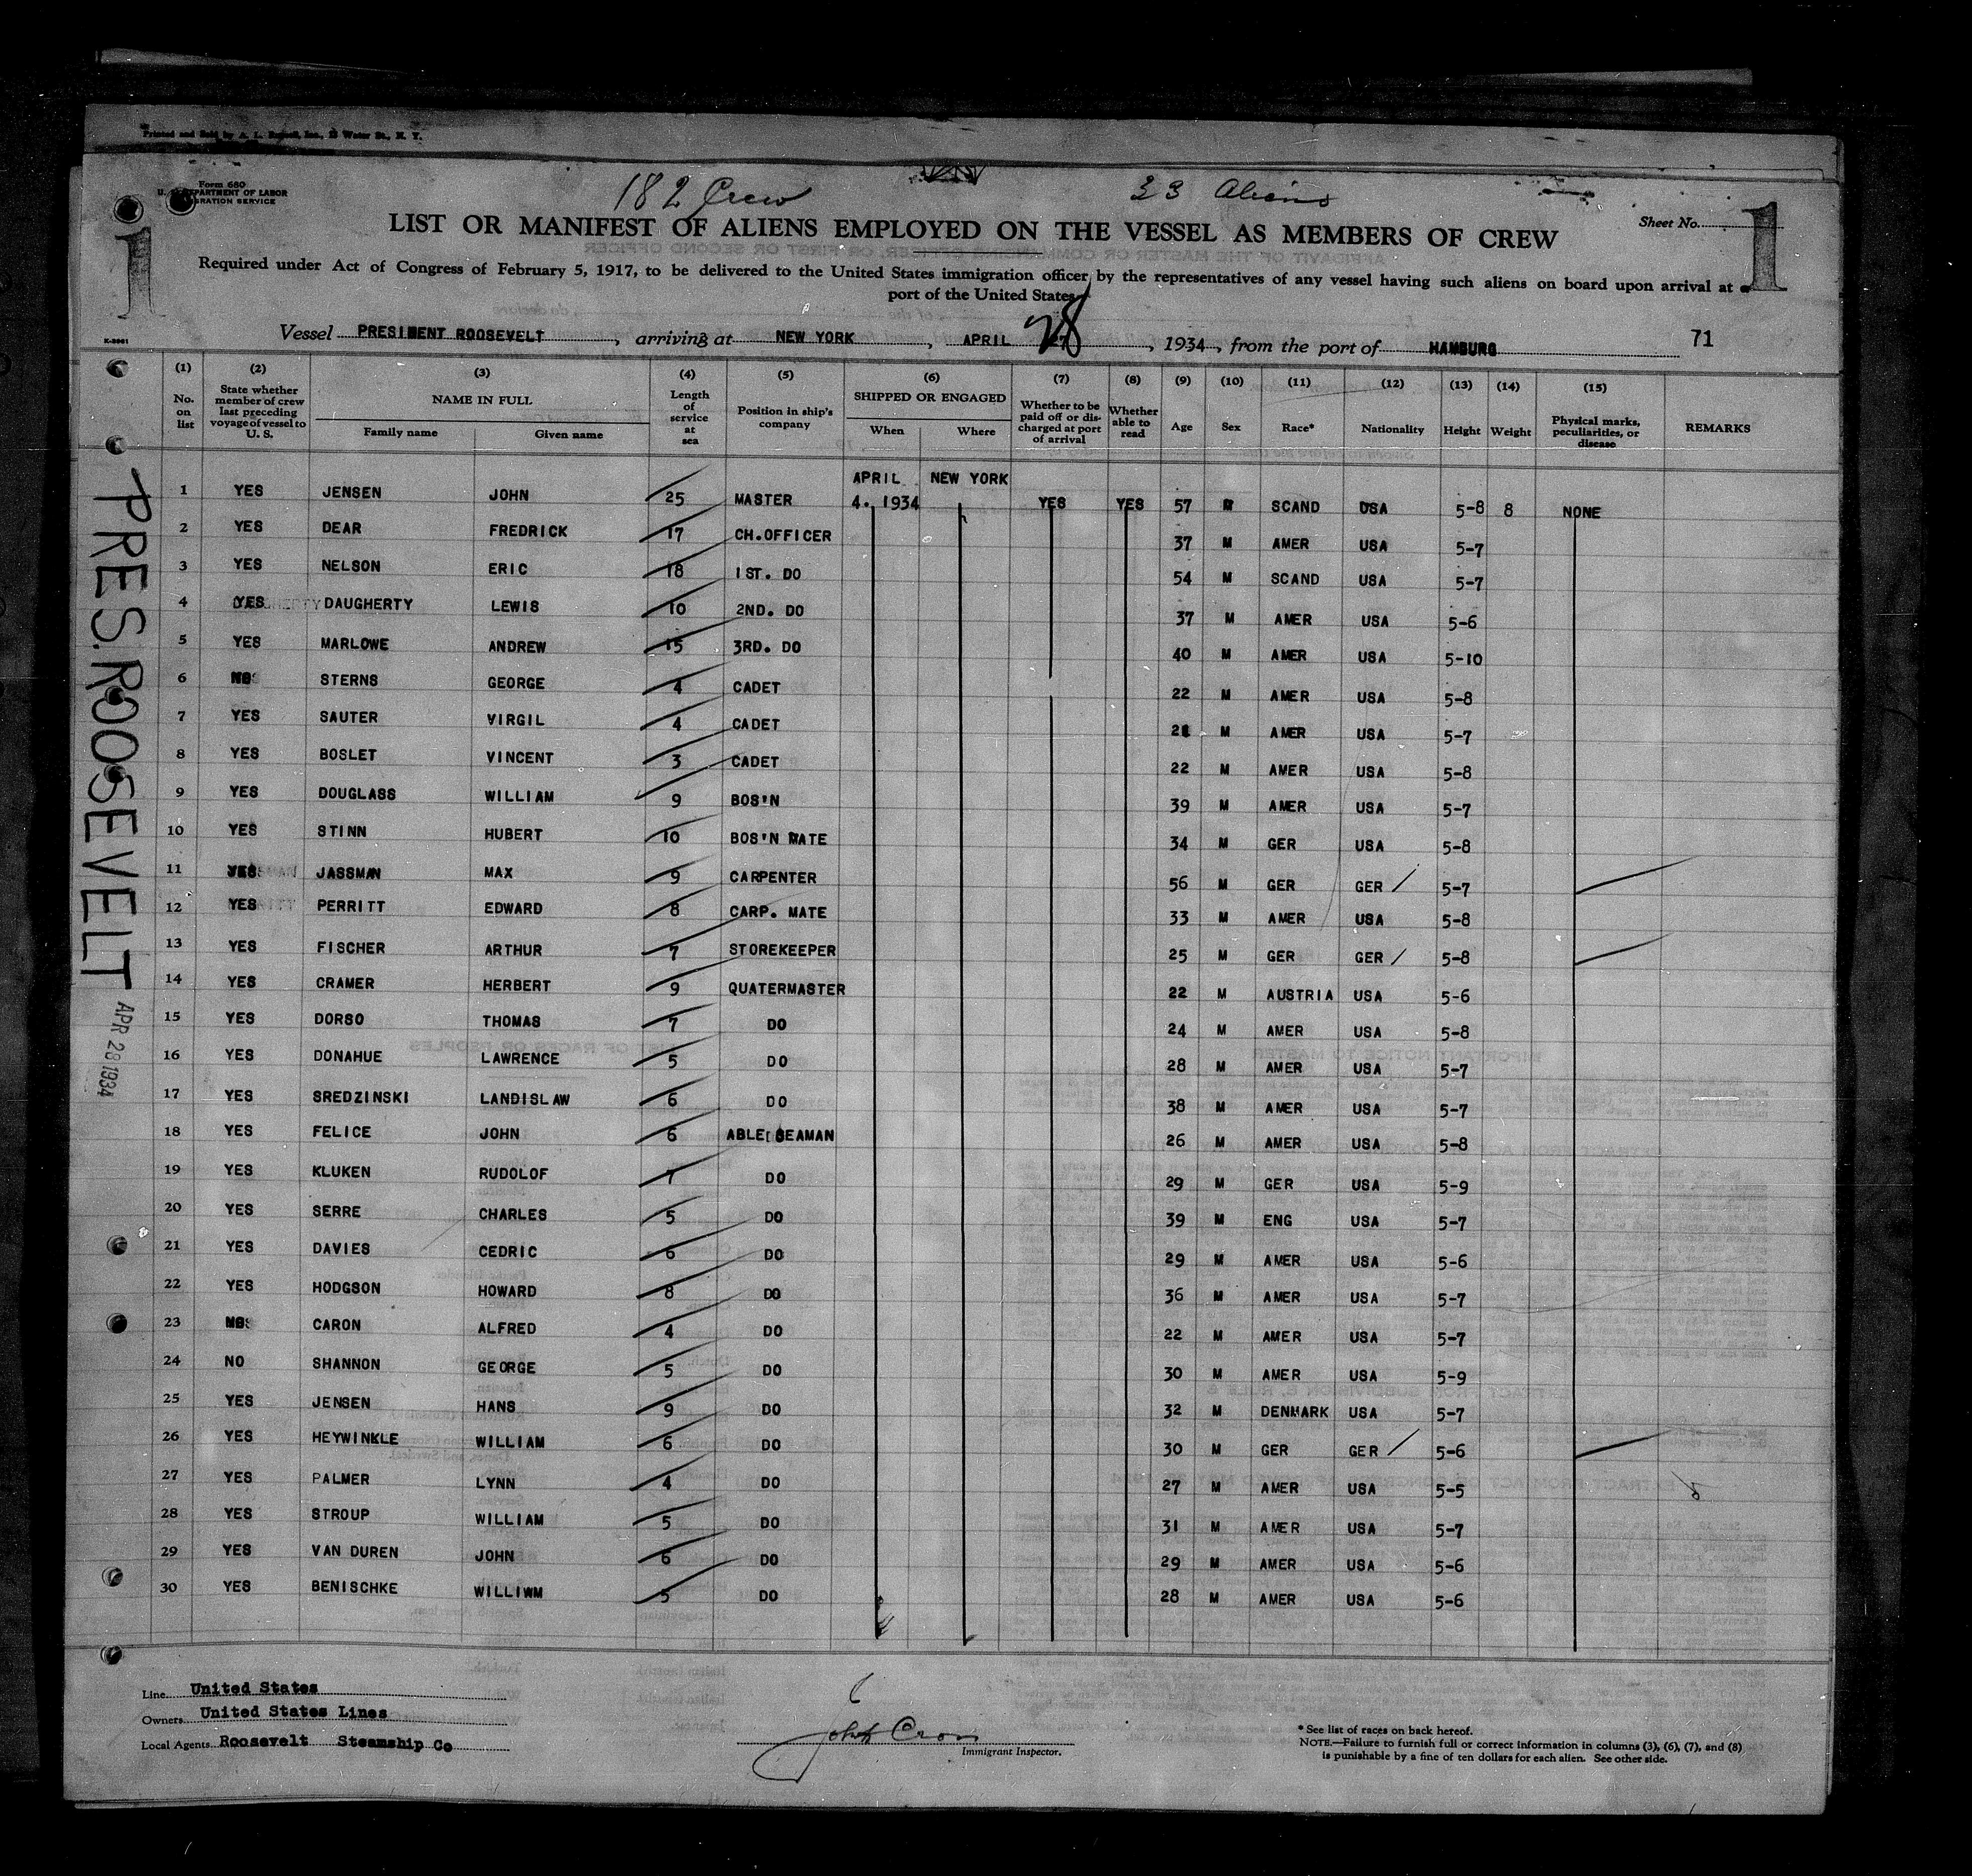 Printed and Sold by A. L. Water St., N. Y.
Form 680
U. S. DEPARTMENT OF LABOR
IMMIGRATION SERVICE
182 Crew 33 Aliens
LIST OR MANIFEST OF ALIENS EMPLOYED ON THE VESSEL AS MEMBERS OF CREW
Sheet No. 1
1
Required under Act of Congress of February 5, 1917, to be delivered to the United States immigration officer by the representatives of any vessel having such aliens on board upon arrival at a
port of the United States
Vessel PRESIDENT ROOSEVELT, arriving at NEW YORK, APRIL 28, 1934, from the port of HAMBURG 71
(1) (2) (3) (4) (5) (6) (7) (8) (9) (10) (11) (12) (13) (14) (15)
No. on list State whether member of crew last preceding voyage of vessel to U. S. NAME IN FULL Family name Given name Length of service at sea Position in ship's company SHIPPED OR ENGAGED When Where Whether to be paid off or discharged at port of arrival Whether able to read Age Sex Race* Nationality Height Weight Physical marks, peculiarities, or disease REMARKS
1 YES JENSEN JOHN 25 MASTER APRIL 4. 1934 NEW YORK YES YES 57 M SCAND USA 5-8 8 NONE
2 YES DEAR FREDRICK 17 CH.OFFICER 37 M AMER USA 5-7
3 YES NELSON ERIC 18 1ST. DO 54 M SCAND USA 5-7
4 YES DAUGHERTY LEWIS 10 2ND. DO 37 M AMER USA 5-6
5 YES MARLOWE ANDREW 15 3RD. DO 40 M AMER USA 5-10
6 NO STERNS GEORGE 4 CADET 22 M AMER USA 5-8
7 YES SAUTER VIRGIL 4 CADET 21 M AMER USA 5-7
8 YES BOSLET VINCENT 3 CADET 22 M AMER USA 5-8
9 YES DOUGLASS WILLIAM 9 BOS'N 39 M AMER USA 5-7
10 YES STINN HUBERT 10 BOS'N MATE 34 M GER USA 5-8
11 YES JASSMAN MAX 9 CARPENTER 56 M GER GER 5-7
12 YES PERRITT EDWARD 8 CARP. MATE 33 M AMER USA 5-8
13 YES FISCHER ARTHUR 7 STOREKEEPER 25 M GER GER 5-8
14 YES CRAMER HERBERT 9 QUATERMASTER 22 M AUSTRIA USA 5-6
15 YES DORSO THOMAS 7 DO 24 M AMER USA 5-8
16 YES DONAHUE LAWRENCE 5 DO 28 M AMER USA 5-7
17 YES SREDZINSKI LANDISLAW 6 DO 38 M AMER USA 5-7
18 YES FELICE JOHN 6 ABLE SEAMAN 26 M AMER USA 5-8
19 YES KLUKEN RUDOLOF 7 DO 29 M GER USA 5-9
20 YES SERRE CHARLES 5 DO 39 M ENG USA 5-7
21 YES DAVIES CEDRIC 6 DO 29 M AMER USA 5-6
22 YES HODGSON HOWARD 8 DO 36 M AMER USA 5-7
23 NO CARON ALFRED 4 DO 22 M AMER USA 5-7
24 NO SHANNON GEORGE 5 DO 30 M AMER USA 5-9
25 YES JENSEN HANS 9 DO 32 M DENMARK USA 5-7
26 YES HEYWINKLE WILLIAM 6 DO 30 M GER GER 5-6
27 YES PALMER LYNN 4 DO 27 M AMER USA 5-5
28 YES STROUP WILLIAM 5 DO 31 M AMER USA 5-7
29 YES VAN DUREN JOHN 6 DO 29 M AMER USA 5-6
30 YES BENISCHKE WILLIWM 5 DO 28 M AMER USA 5-6
PRES. ROOSEVELT
APR 28 1934
Line United States
Owners United States Lines
Local Agents Roosevelt Steamship Co
6
John Cron
Immigrant Inspector.
* See list of races on back hereof.
NOTE.—Failure to furnish full or correct information in columns (3), (6), (7), and (8)
is punishable by a fine of ten dollars for each alien. See other side.